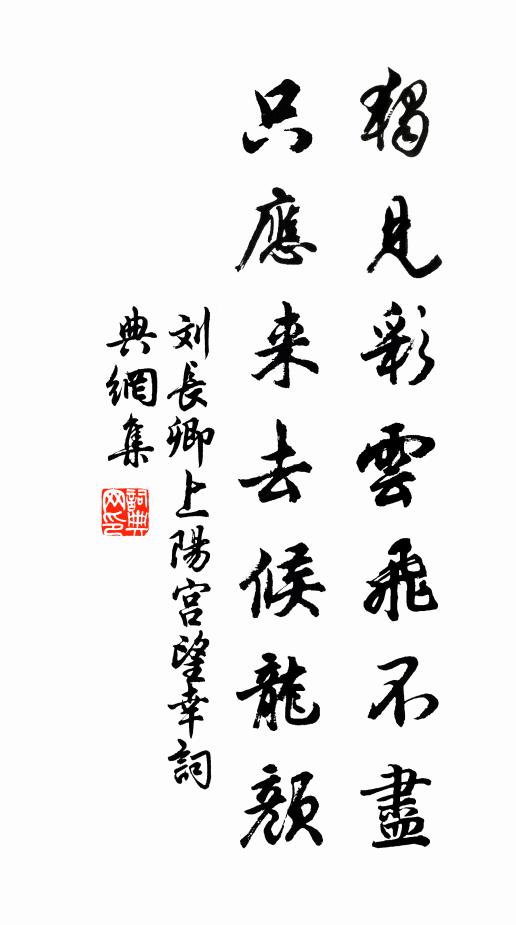 獨見彩雲飛不盡
只應来去候龍顏
刘長卿上陽宮望幸詞
典網集
詞典网印